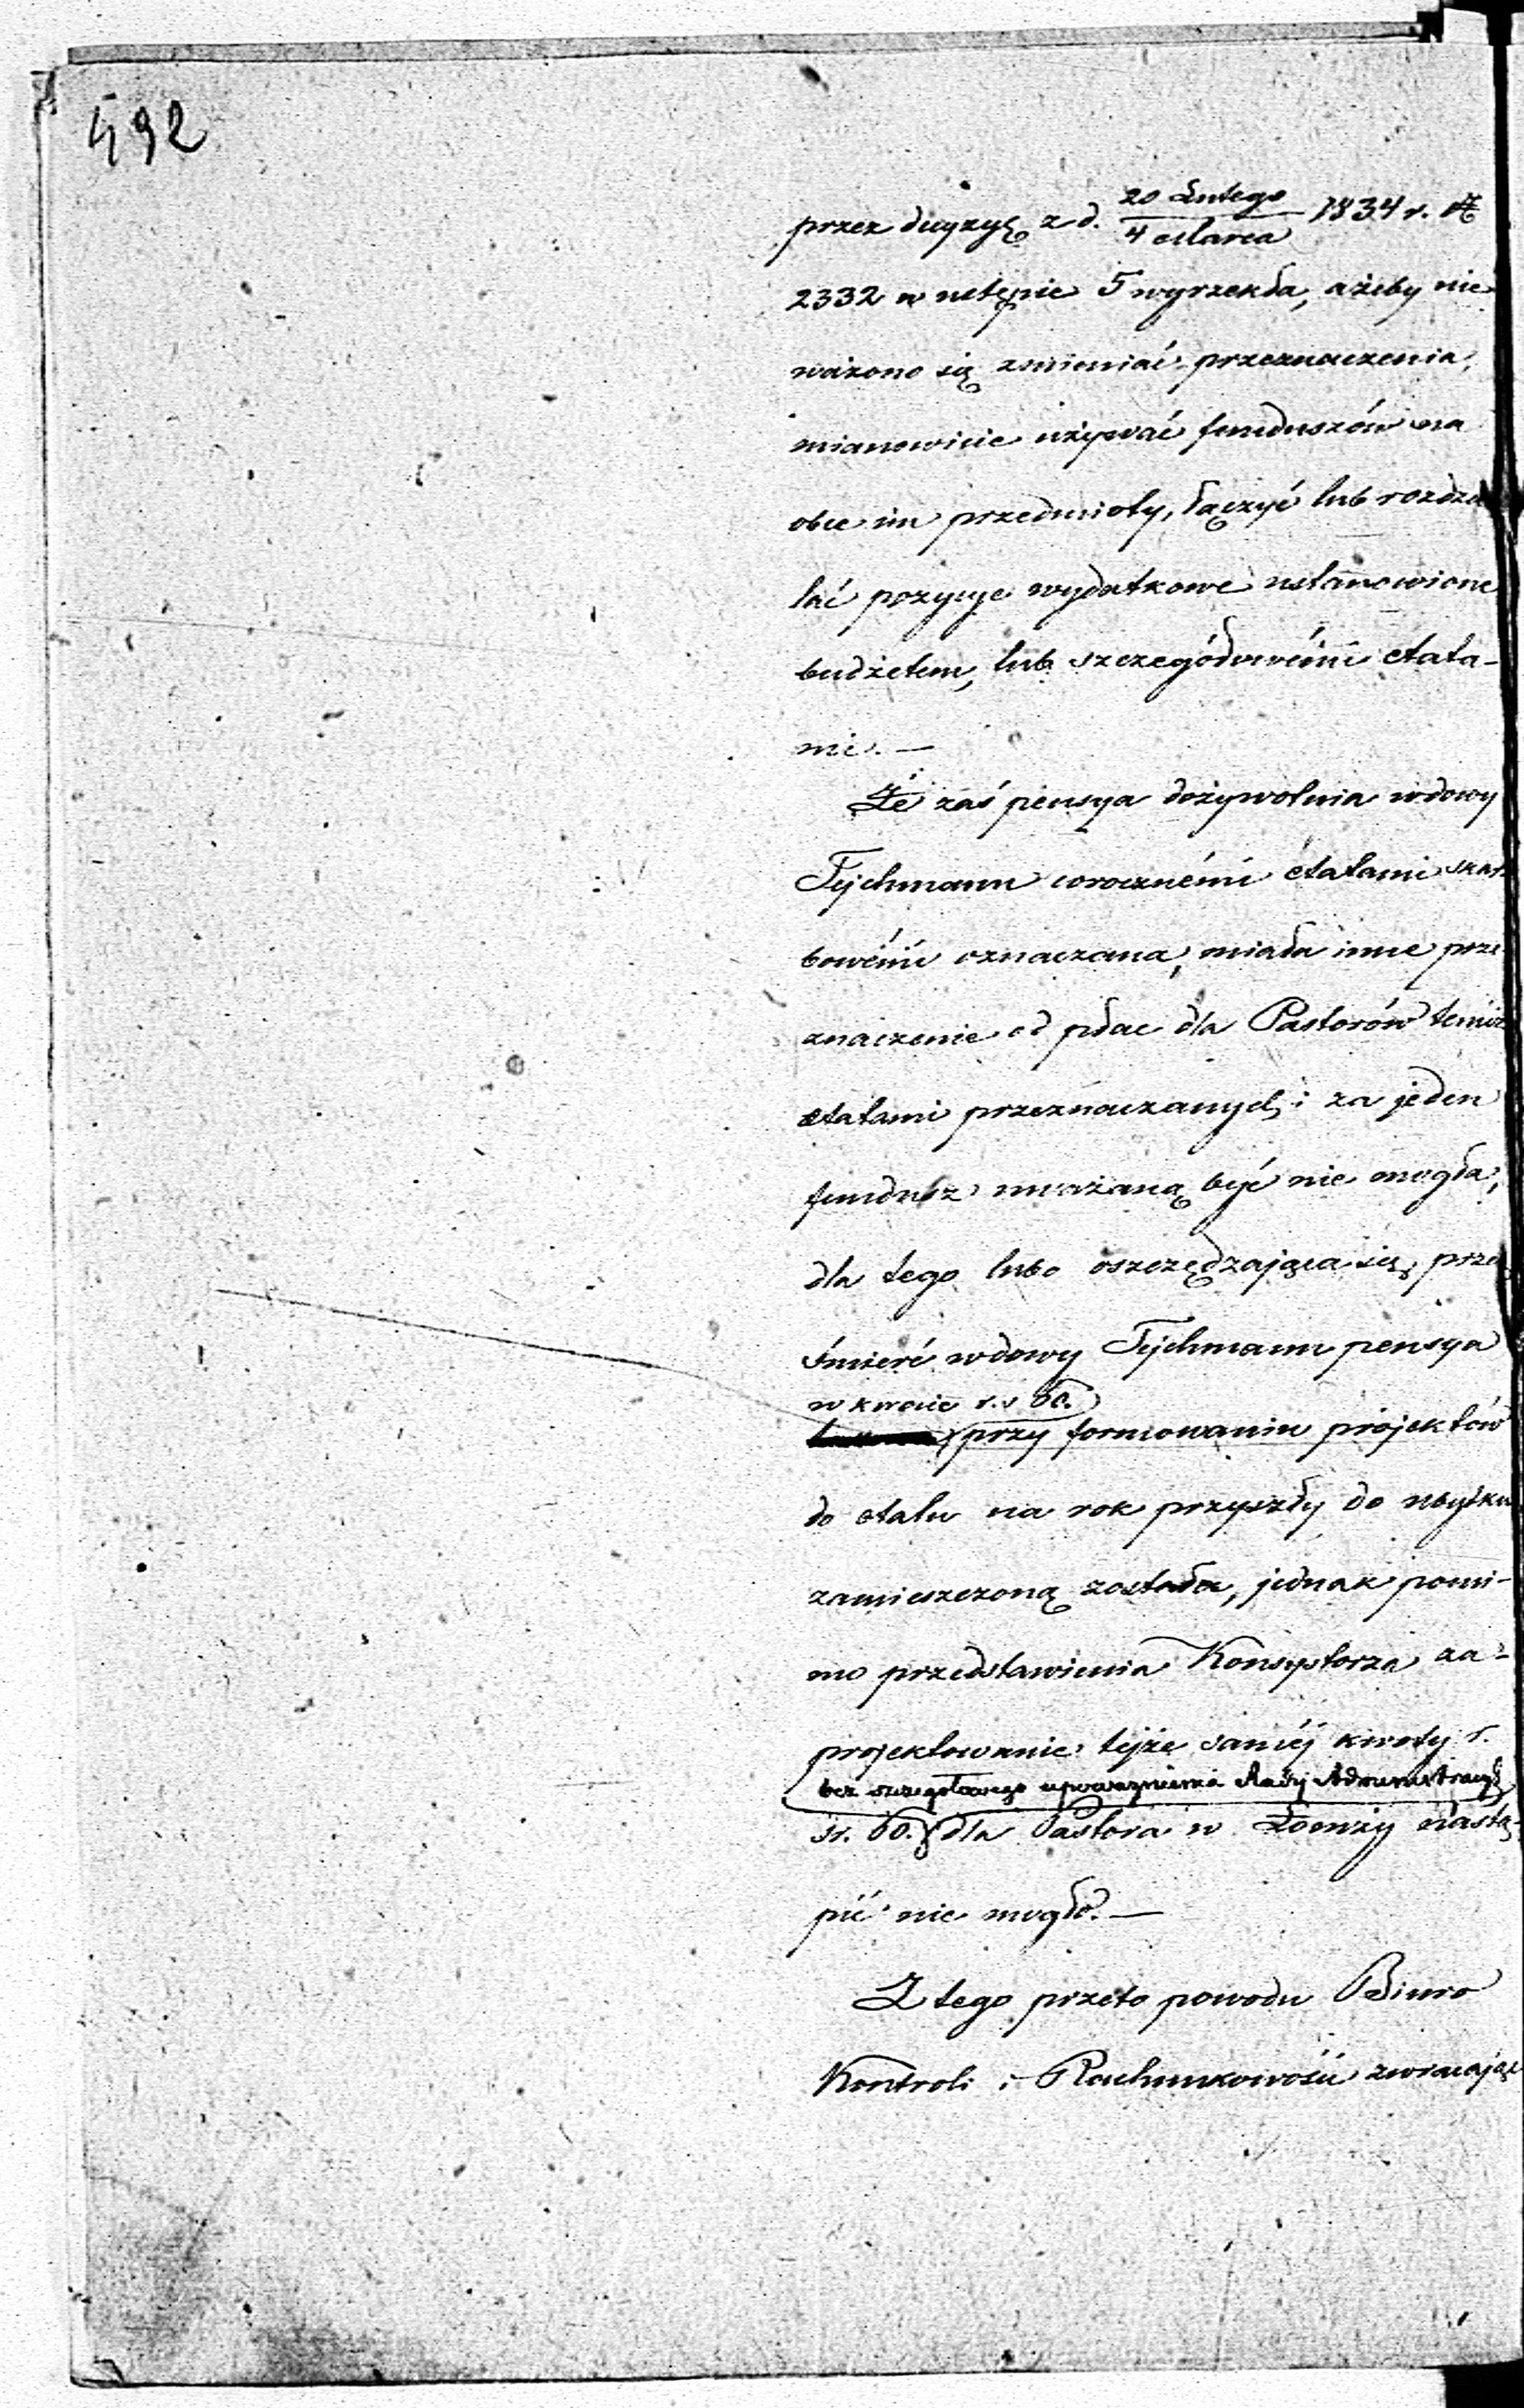 492
przez decyzyę z d. 20 Lutego / 4 Marca 1834 r. №
2332 w ustępie 5 wyrzekła, ażeby nie
ważono się zmieniać przeznaczenia,
mianowicie używać funduszów na
obce im przedmioty, łączyć lub rozdzie
lać pozycye wydatkowe ustanowione
budżetem, lub szczegółowémi etata-
mi. —
Że zaś pensya dożywotnia wdowy
Tejchmann corocznémi etatami skar
bowémi oznaczana, miała inne prze
znaczenie od płac dla Pastorów temiż
etatami przeznaczanych i za jeden
fundusz uważaną być nie mogła,
dla tego lubo oszczędzająca się przez
śmierć wdowy Tejchmann pensya
w kwocie r. s. 60.
przy formowaniu projektów
do etatu na rok przyszły do ubytku
zamieszczoną została, jednak pomi-
mo przedstawienia Konsystorza za-
projektowanie tejże saméj kwoty r.
bez szczegółowego upoważnienia Rady Administracyj
sr. 60. dla Pastora w Łomży nastą-
pić nie mogło. —
Z tego przeto powodu Biuro
Kontroli i Rachunkowości zwracając